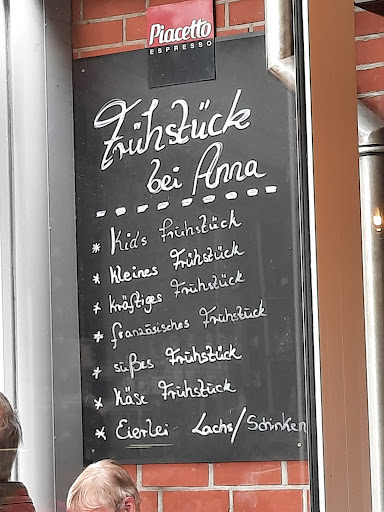 Piacetto
ESPRESSO
Frühstück
bei Anna
* Kid's Frühstück
* kleines Frühstück
* kräftiges Frühstück
* französisches Frühstück
* süßes Frühstück
* Käse Frühstück
* Eierlei Lachs/Schinken